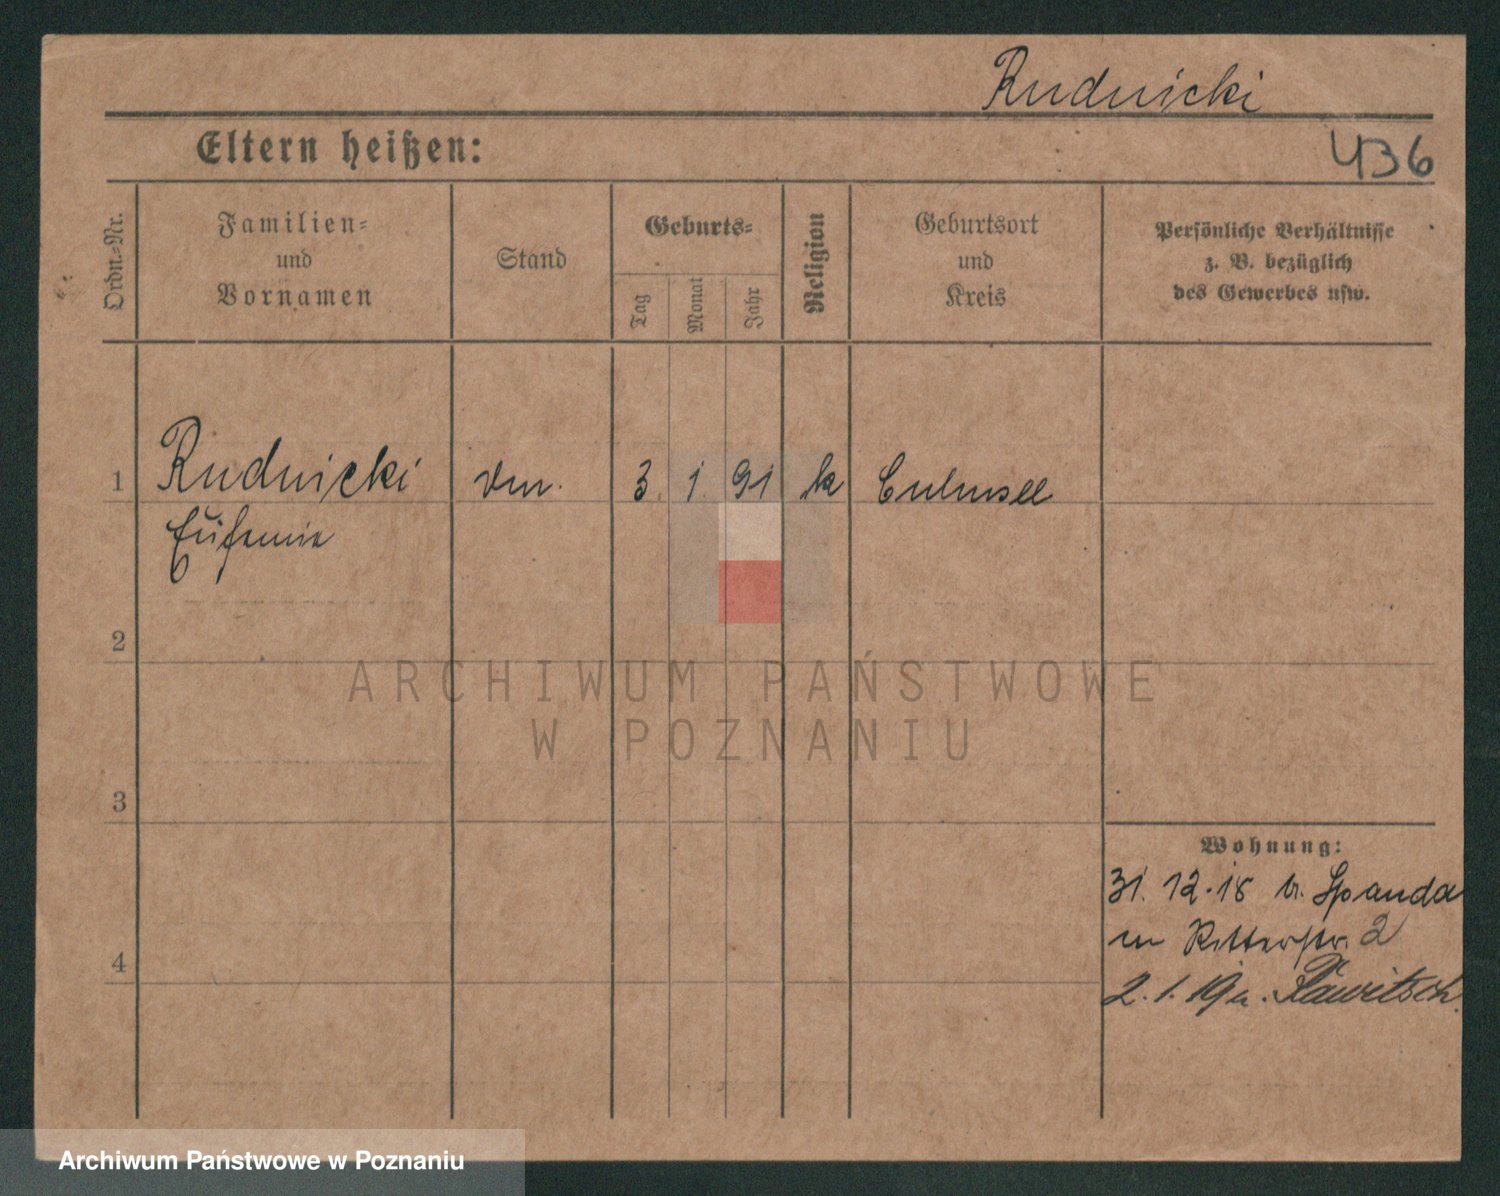 Rudnicki
Eltern heißen:
436
Ordn.-Nr.
Familien-
und
Vornamen
Stand
Geburts-
Tag
Monat
Jahr
Religion
Geburtsort
und
Kreis
Persönliche Verhältnisse
z. B. bezüglich
des Gewerbes usw.
1 Rudnicki 3. 1. 91 k Culmsee
Eufemia
2
ARCHIWUM PAŃSTWOWE
W POZNANIU
3
Wohnung:
31. 12. 18 v. Spanda
Ritterstr. 2
4
2. 1. 19 n. Rawitsch.
Archiwum Państwowe w Poznaniu